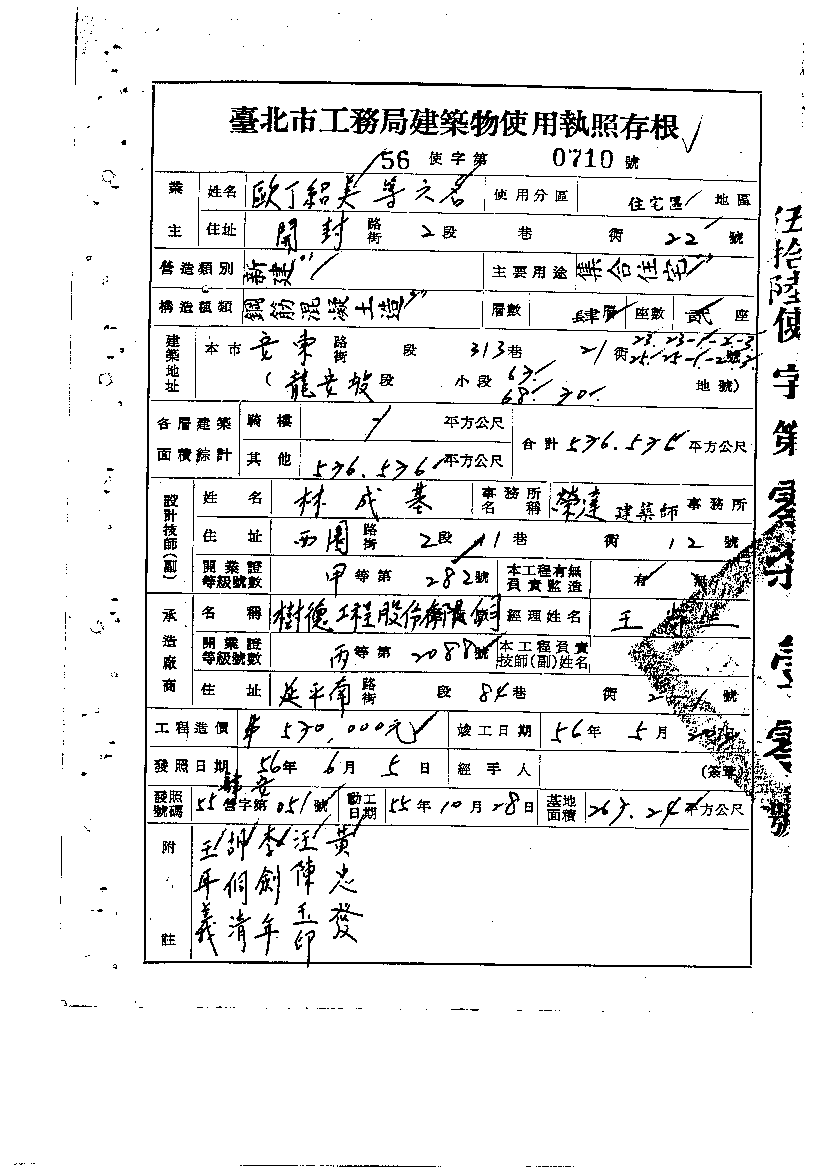 臺北市工務局建築物使用執照存根
56 使字第 0710 號
業主 姓名 歐丁紹美等六名 使用分區 住宅區 地區
住址 開封 路街 2段 巷 街 22 號
營造類別 新建 主要用途 集合住宅
構造種類 鋼筋混凝土造 層數 肆層 座數 貳 座
建築地址 本市 安東 路街 段 313巷 21 街 23. 23-1-2-3 25. 25-1-2-3 號
(龍安坡段 小段 63. 68. 70. 地號)
各層建築面積綜計 騎樓 / 平方公尺 合計 536.536 平方公尺
其他 536.536 平方公尺
設計技師(副) 姓名 林成基 事務所名稱 榮達建築師 事務所
住址 西園 路街 2段 11巷 街 12 號
開業證等級號數 甲等第 282號 本工程有無負責監造 有 無
承造廠商 名稱 樹德工程股份有限公司 經理姓名 王
開業證等級號數 丙等第 2088號 本工程負責技師(副)姓名
住址 延平南 路街 段 84巷 街 號
工程造價 530,000元 竣工日期 56年 5月
發照日期 56年 6月 5日 經手人 (簽章)
發照號碼 55營字第051號 動工日期 55年10月28日 基地面積 平方公尺
附註 黃忠發
汪陳玉印
李劍年
胡侗清
王年義
伍拾陸使字第零柒壹零號